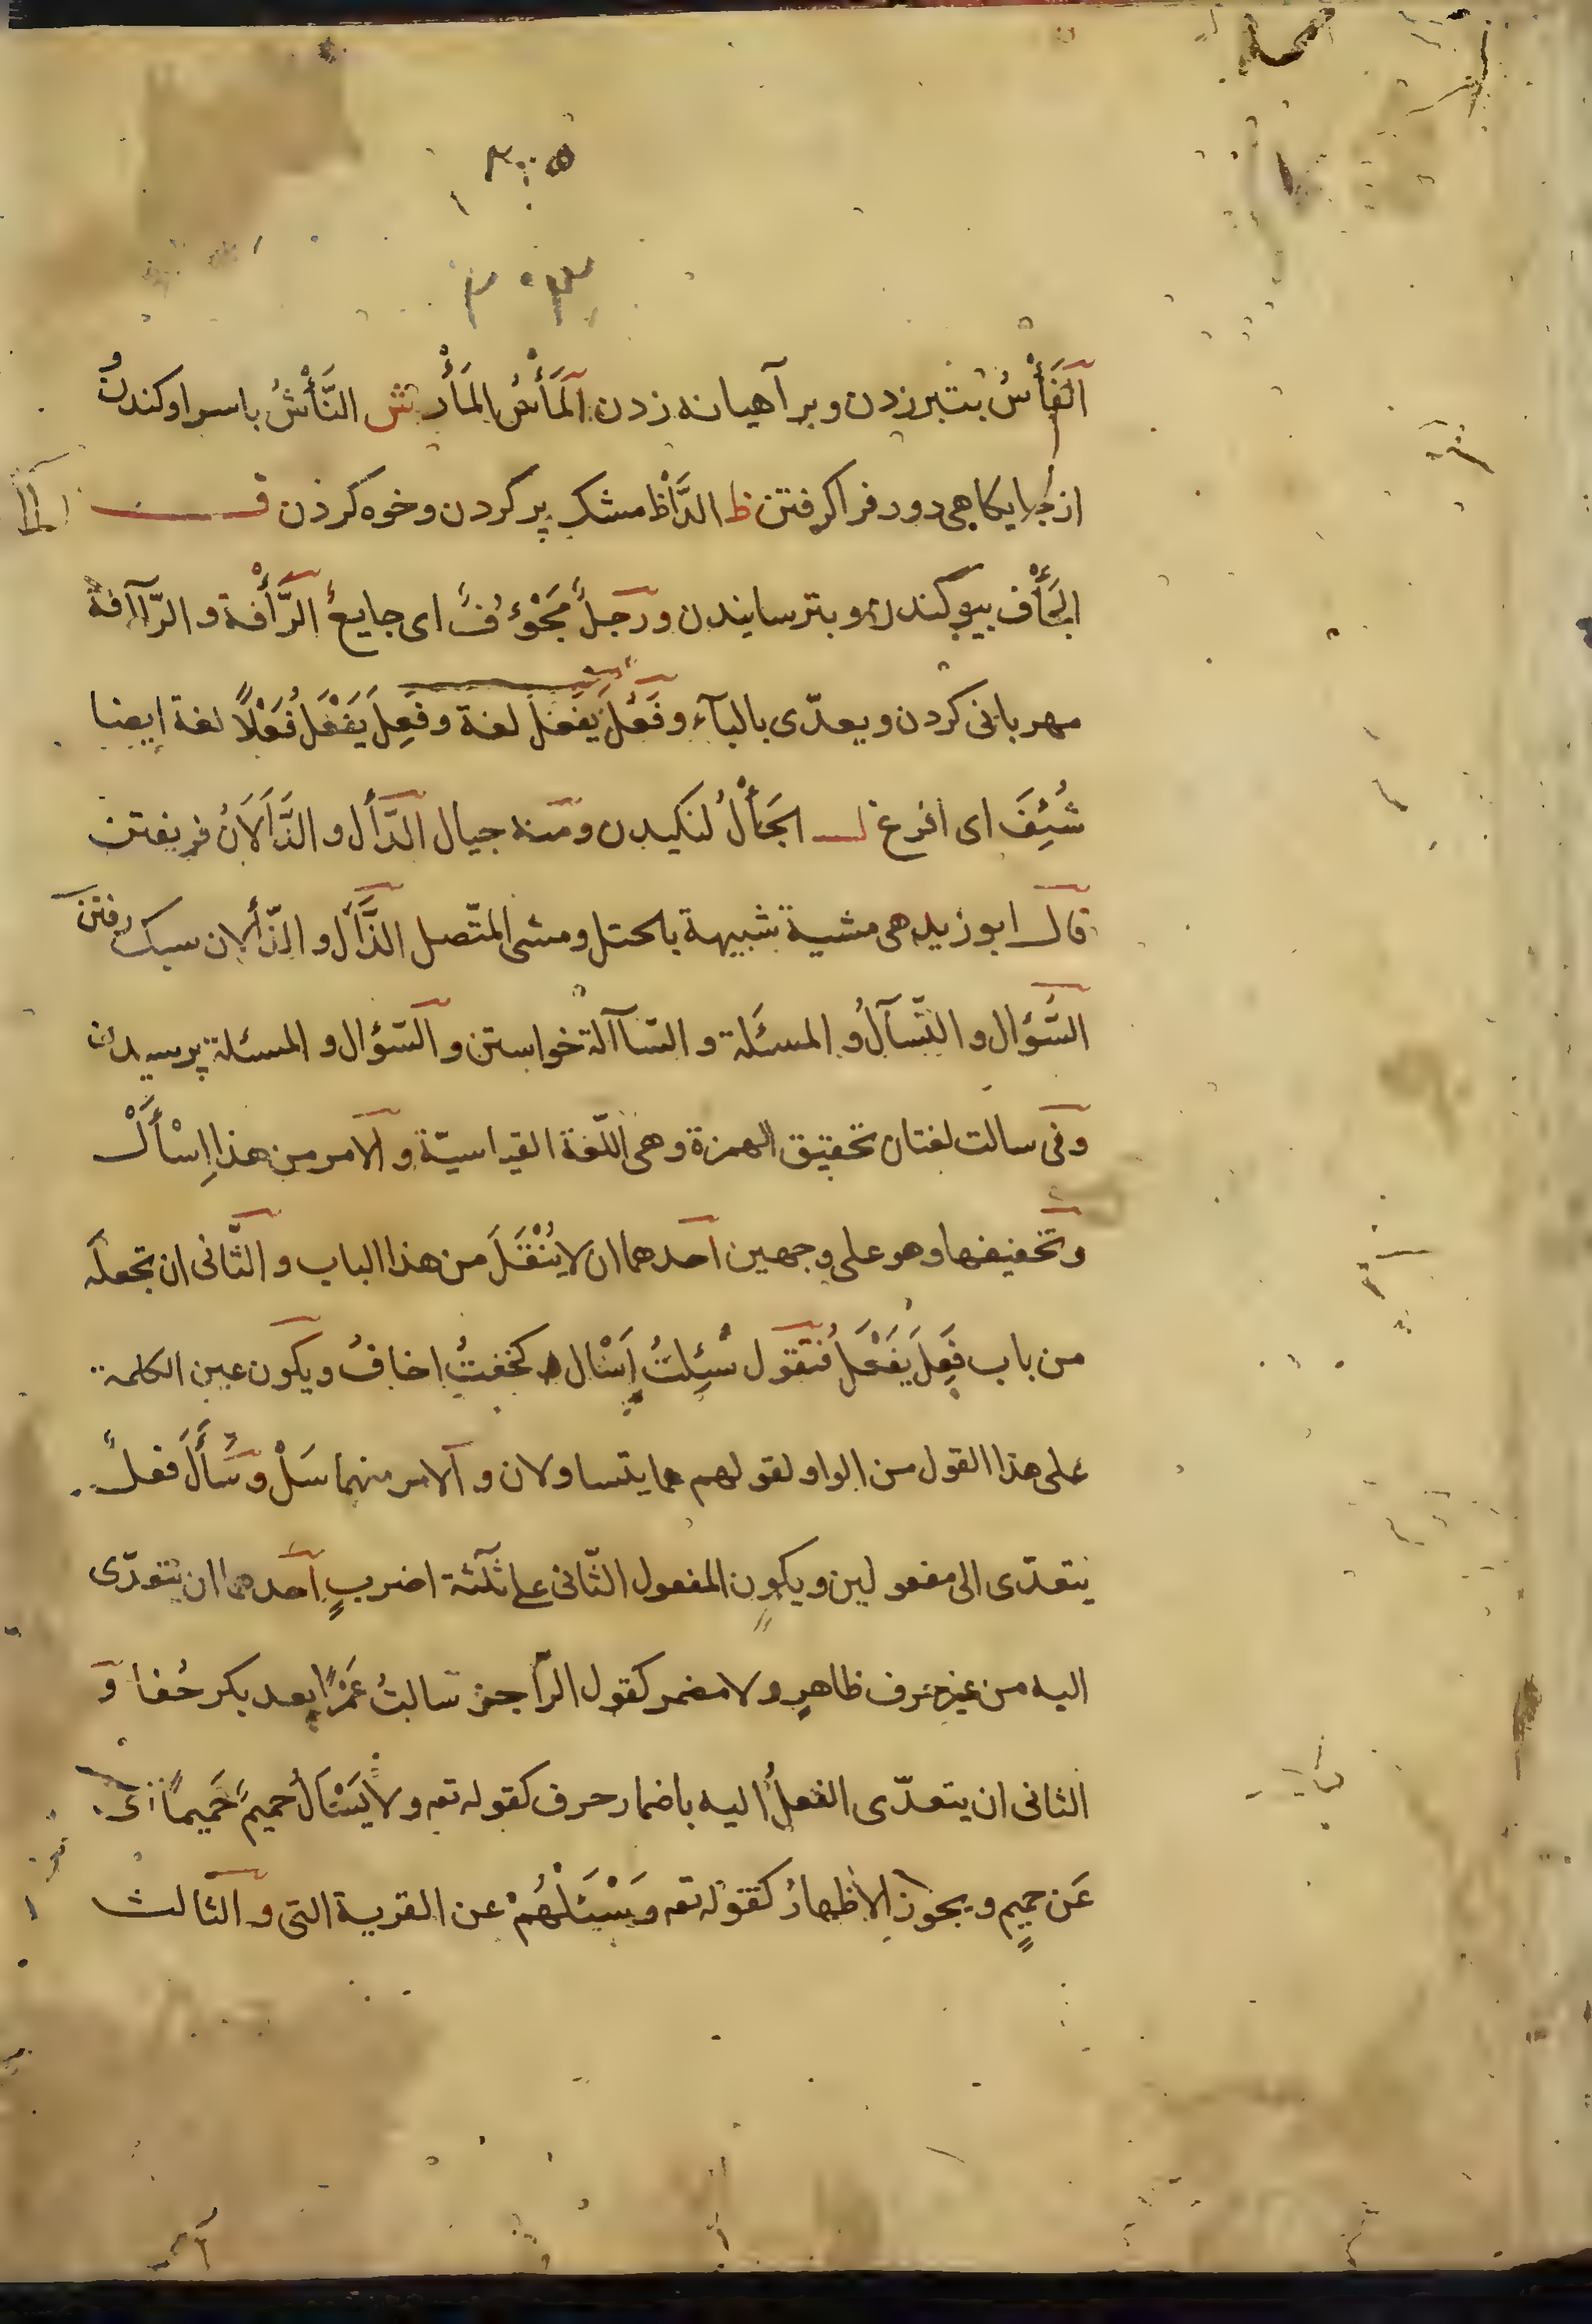 الفَأْسُ بتبر زدن و بر آهیانه زدن المَأْسُ المَأْر ش النَّأْشُ باسر او کندنُ و
از جایکاهی دور فرا کرفتن ظ الدَّأْظ مشک پر کردن و خوه کردن ف
الجَأْف بیو کندن و بترسایندن و رجلٌ مَجْؤُفٌ ای جایعٌ الرَّأْفة و الرّاآفة
مهربانی کردن و یعدّی بالبآء و فَعُلَ یَفْعُلُ لغة و فَعِلَ یَفْعَلُ فَعْلاً لغة ایضا
شُئِفَ ای افزع ل الجَأْلُ لنکیدن و منه جیال الدَّأَل و الدَّأَلَانُ فریفتن
قال ابو زید هی مشیة شبیهة بالختل و مشی المتّصل الذَّأْل و الذّألان سبک رفتن
السُّؤال و التَّسآلُ و المسئَلة و السّاآلة خواستن و السّؤال و المسئلة پرسیدن
و فی سالت لغتان تحقیق الهمزة و هی اللّغة القیاسیّة و الامر من هذا اِسْأَلْ
و تخفیفها و هو علی وجهین احدهما ان لا یُنْقَلَ من هذا الباب و الثّانی ان تجعله
من باب فَعِلَ یَفْعَلُ فتقول سُئِلتُ اَسْال کخفتُ اخافُ و یکون عین الکلمة
علی هذا القول من الواو لقولهم هما یتساولان و الامر منهما سَلْ و سَأَلَ فعلٌ
یتعدّی الی مفعولین و یکون المفعول الثّانی علی ثلٰثة اضربٍ احدهما ان یتعدّی
الیه من غیر حرف ظاهرٍ ولا مضمر کقول الرّاجز سالتُ عَمْرًا بعد بکر خُفا و
الثانی ان یتعدّی الفعلُ الیه باضمار حرف کقوله تعه ولا یَسْئَالُ حمیمٌ حَمیمًا ای
عَن حمیمٍ و یجوز الاظهارُ کقوله تعه وَسْئَلْهُمْ عن القریة التی و الثالث